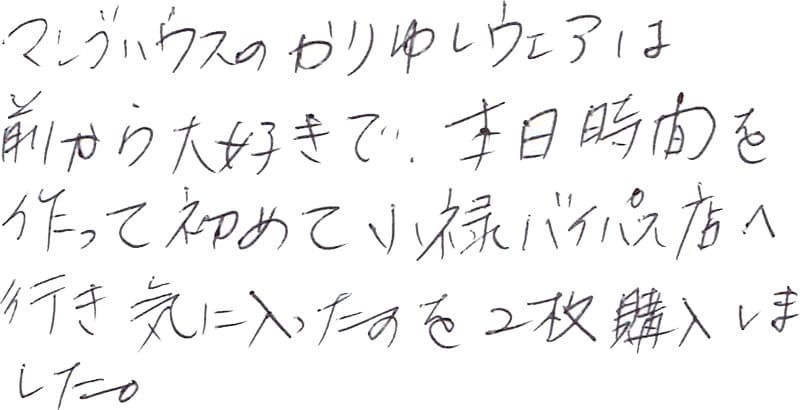 マングハウスのかりゆしウェアは
前から大好きで、本日時間を
作って初めて小禄バイパス店へ
行き気に入ったのを2枚購入しま
した。